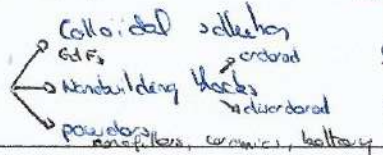 Colloidal
ordered
Nanobuilding blocks
disordered
powders
nanofillers, ceramics, battery